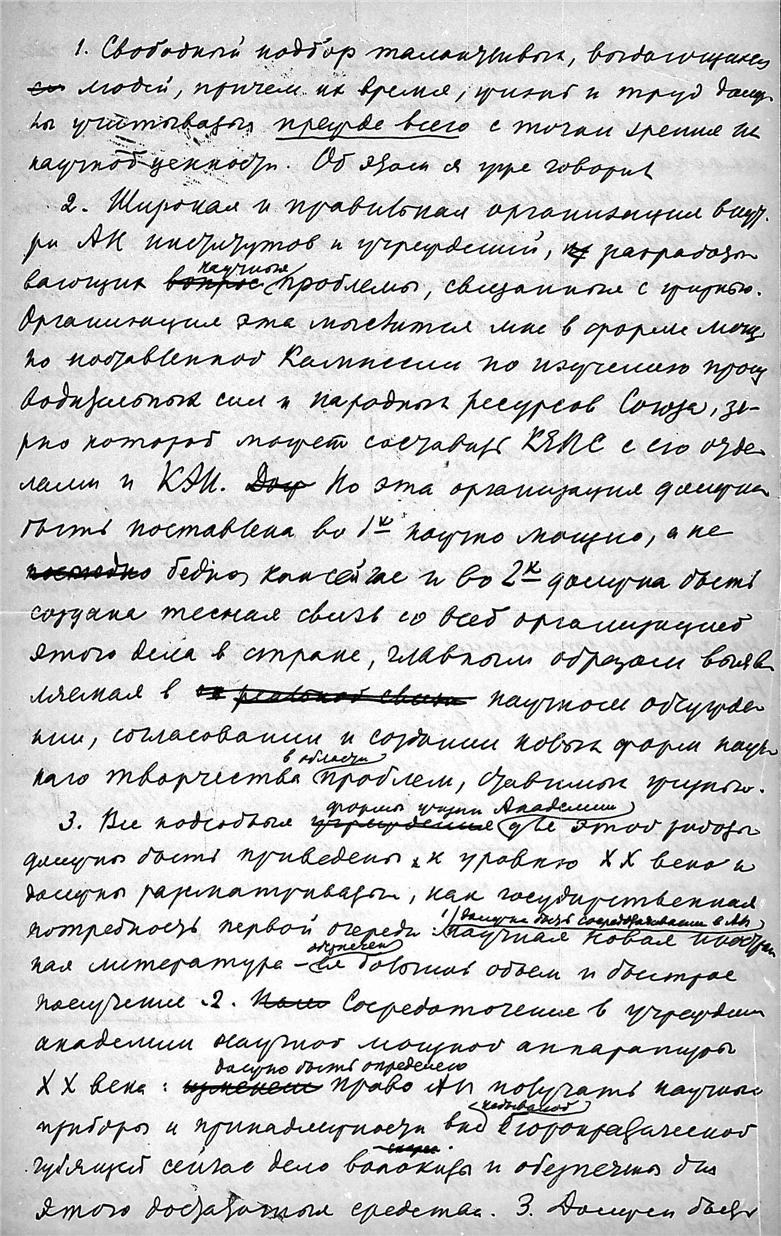 1. Свободный подбор талантливых, выдающих
ся людей, причем их время, жизнь и труд долж
ны учитываться прежде всего с точки зрения их
научной ценности. Об этом я уже говорил
2. Широкая и правильная организация внут-
ри АН институтов и учреждений, разрабаты
вающих вопрос научные проблемы, связанные с жизнью.
Организация эта мыслится мне в форме мощ
но поставленной Комиссии по изучению произ
водительных сил и народных ресурсов Союза, зе-
рно которой может составить КЕПС с его отде
лами и КЭИ. Но эта организация должна
быть поставлена во 1х научно мощно, а не
бедно, как сейчас и во 2х должна быть
создана тесная связь со всей организацией
этого дела в стране, главным образом выяв
ляемая в реальной связи научном обсужде
нии, согласовании и создании новых форм науч
ного творчества в области проблем, ставимых жизнью.
3. Все подсобные учреждения формы жизни Академии для этой работы
должны быть приведены к уровню XX века и
должны рассматриваться, как государственная
потребность первой очереди: 1) должна быть сосредотачиваема в АН научная новая иностран
ная литература – обеспечен ея большой объем и быстрое
получение. 2. Сосредоточение в учрежден
академии научной мощной аппаратуры
XX века: должно быть определено право АН получать научные
приборы и принадлежности вне бюрократической
губящей сейчас дело волокиты и обеспечены для
этого достаточные средства. 3. Должен быть